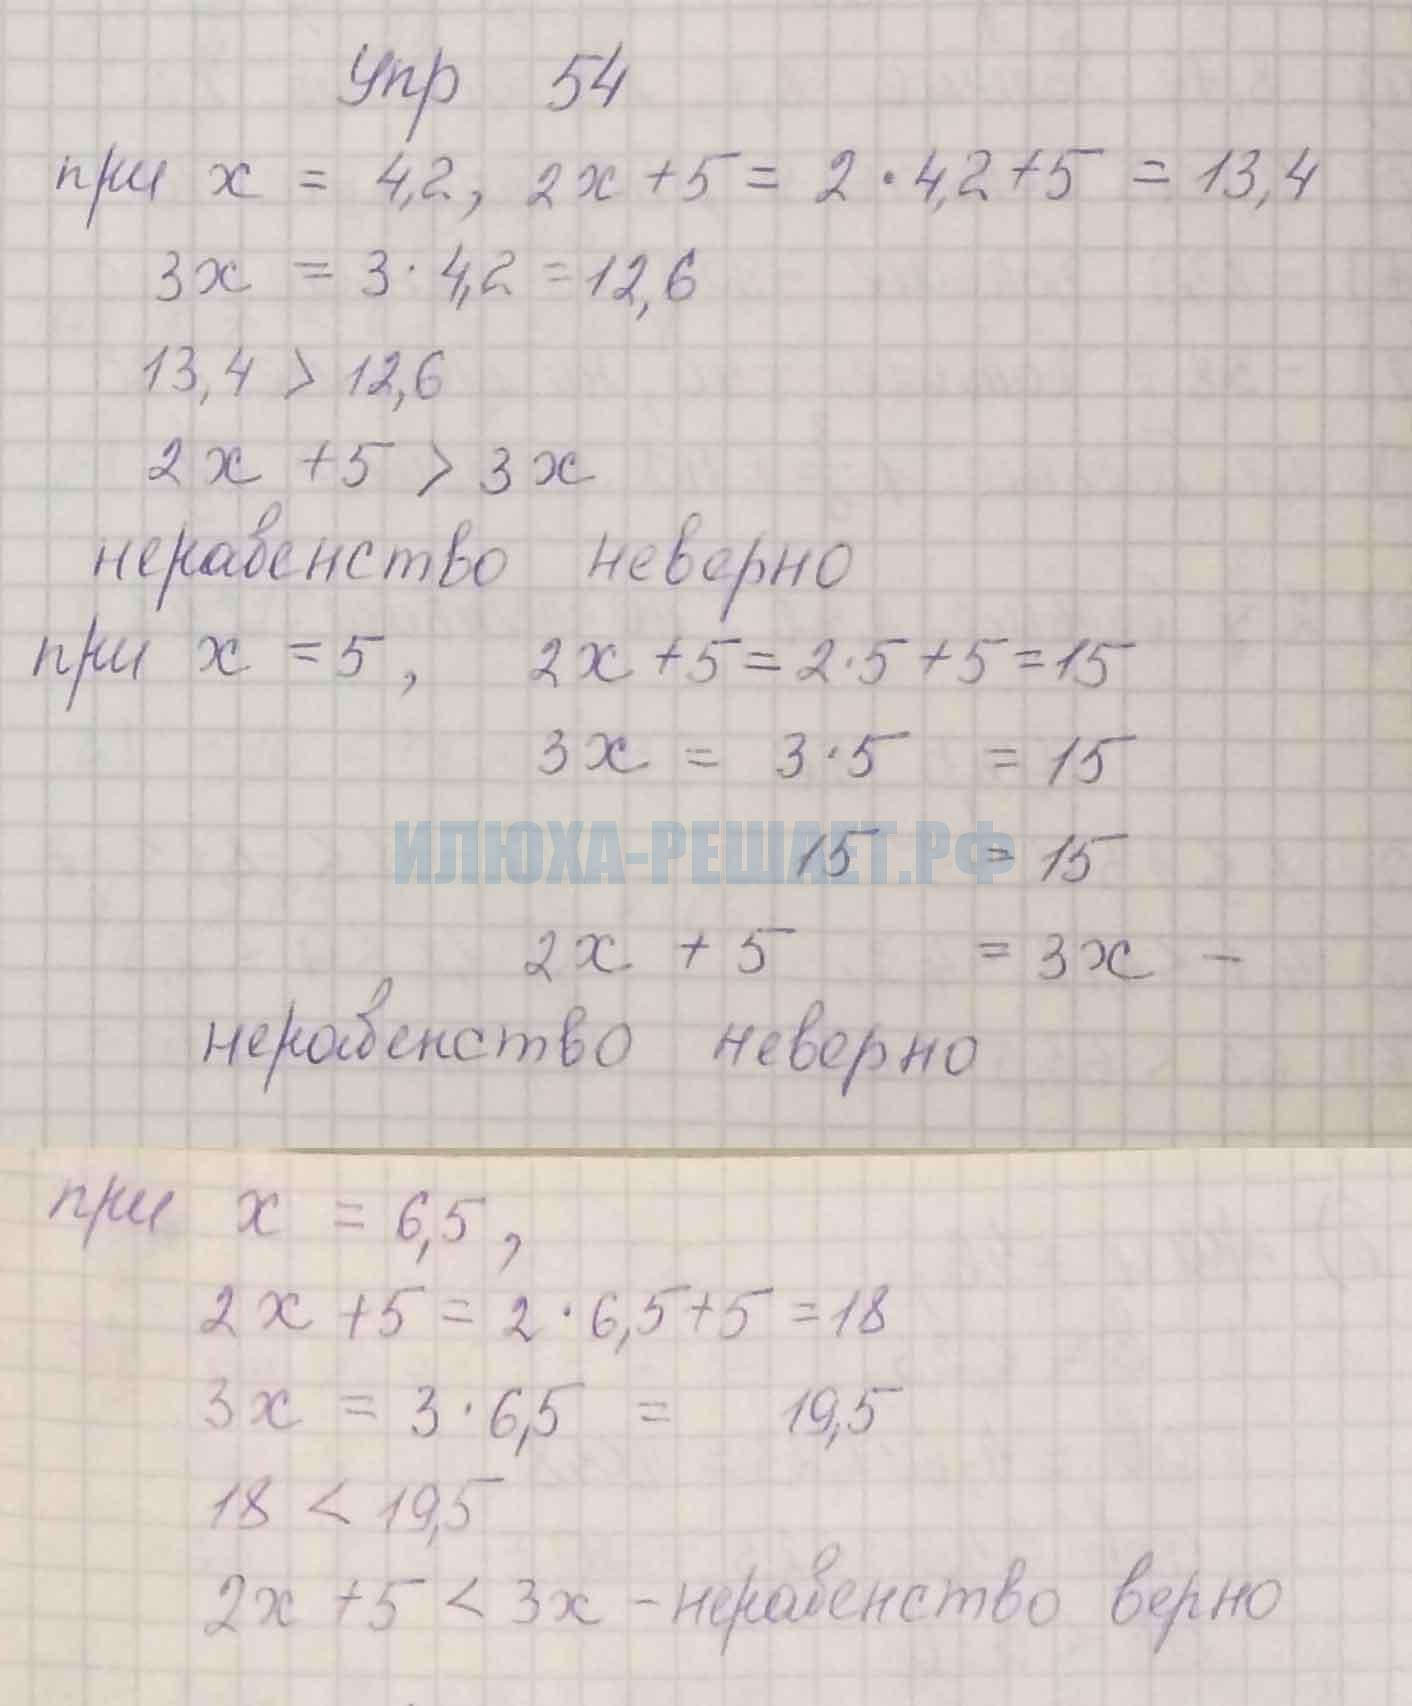 Упр 54
при x = 4,2, 2x + 5 = 2 · 4,2 + 5 = 13,4
3x = 3 · 4,2 = 12,6
13,4 > 12,6
2x + 5 > 3x
неравенство неверно
при x = 5, 2x + 5 = 2 · 5 + 5 = 15
3x = 3 · 5 = 15
ИЛЮХА-РЕШАЕТ.РФ
15 = 15
2x + 5 = 3x -
неравенство неверно
при x = 6,5,
2x + 5 = 2 · 6,5 + 5 = 18
3x = 3 · 6,5 = 19,5
18 < 19,5
2x + 5 < 3x - неравенство верно